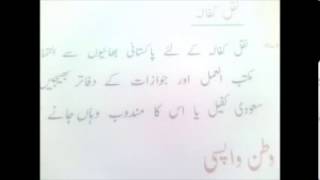 نقل کفالہ
نقل کفالہ کے لئے پاکستانی بھائیوں سے
مکتب العمل اور جوازات کے دفاتر بھیجیں
سعودی کفیل یا اس کا مندوب وہاں جانے
وطن واپسی